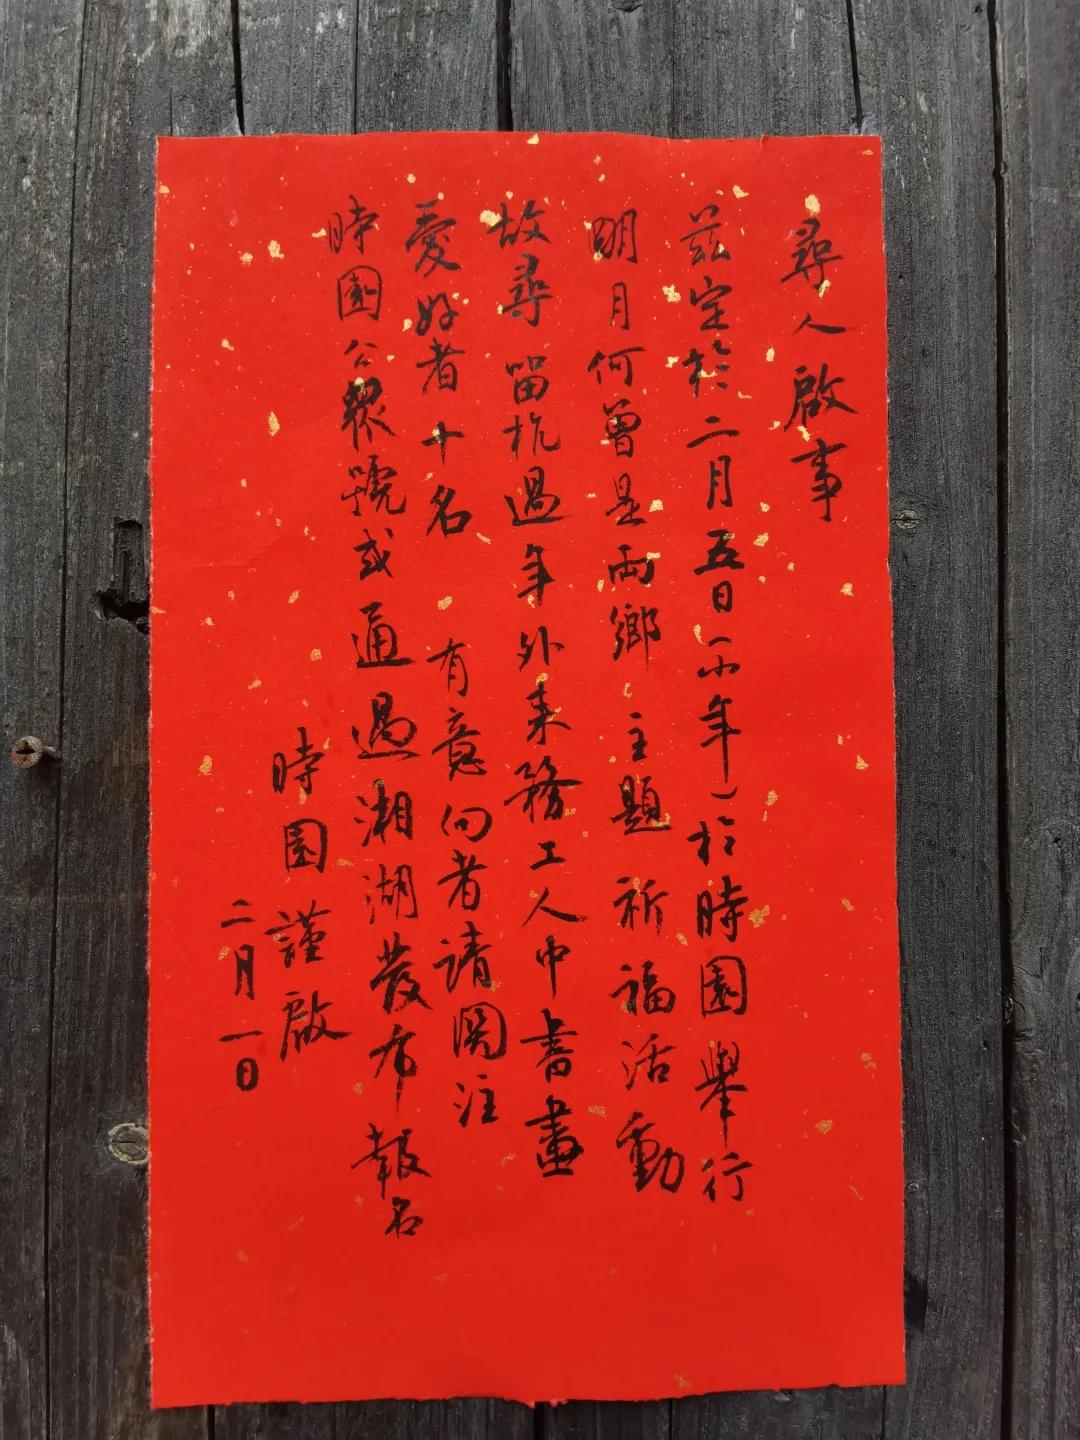 尋人啟事
茲定於二月五日(小年)於時園舉行
明月何曾是兩鄉 主題 祈福活動
故尋 留杭過年外來務工人中書畫
愛好者十名 有意向者請關注
時園公眾號或通過湘湖發布報名
時園 謹啟
二月一日